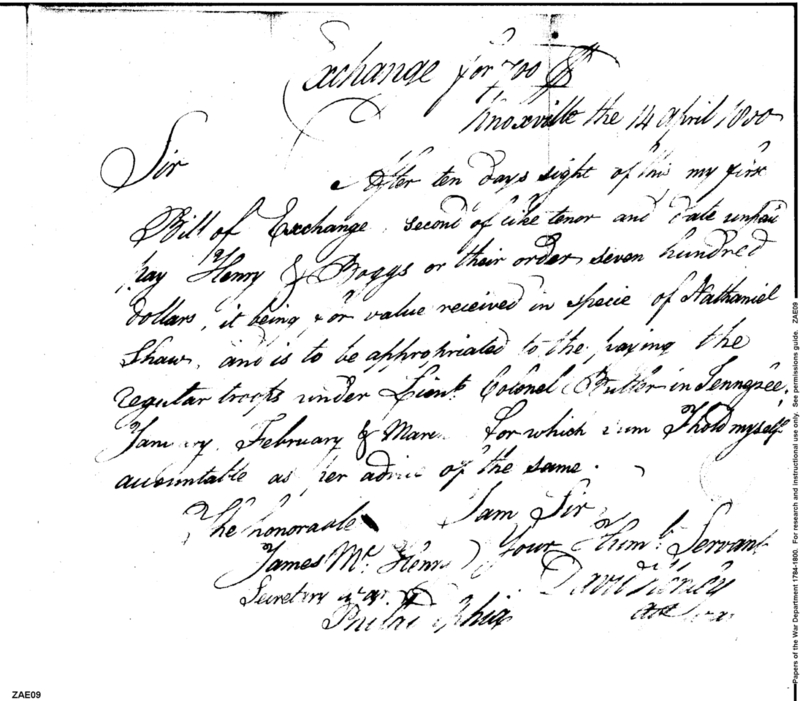 Exchange for 700 $
Knoxville the 14 April 1800
Sir
After ten days sight of this my first
Bill of Exchange, second of like tenor and date unpaid
pay Henry & Boggs or their order seven hundred
dollars, it being for value received in specie of Nathaniel
Shaw, and is to be appropriated to the paying the
regular troops under Lieut. Colonel Butler in Tennessee,
January, February & March for which sum I hold myself
accountable as per advice of the same.
I am Sir
The honorable
James Mc. Henry Your Humb. Servant
Secretary war David Henley
Philadelphia
Papers of the War Department 1784-1800. For research and instructional use only. See permissions guide. ZAE09
ZAE09